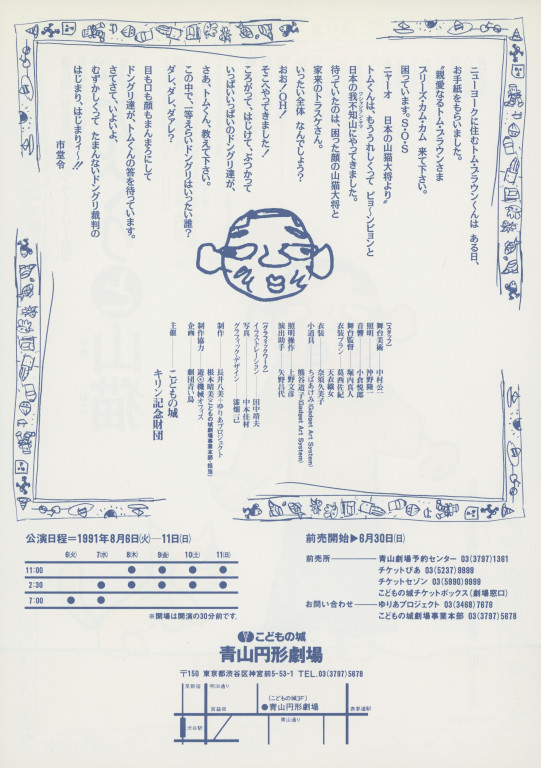 ニューヨークに住むトム・ブラウンくんは ある日、
お手紙をもらいました。
"親愛なるトム・ブラウンさま
プリーズ・カム・カム 来て下さい。
困っています。S・O・S
ニャーオ 日本の山猫大将より"
トムくんは、もううれしくって ピョ〜ンピョンと
日本の我不知山にやってきました。
待っていたのは、困った顔の山猫大将と
家来のトラスケさん。
いったい全体 なんでしょう?
おお!OH!
そこへやってきました!
ころがって、はじけて、ぶつかって
いっぱいいっぱいのドングリ達が、
さあ、トムくん、教えて下さい。
この中で、一等えらいドングリはいったい誰?
ダレ、ダレ、ダアレ?
目も口も顔もまんまろにして
ドングリ達が、トムくんの答を待っています。
さてさて、いよいよ、
むずかしくって たまんないドングリ裁判の
はじまり、はじまりィ〜!!
市堂令
[スタッフ]
舞台美術 中村公一
照明 沖野隆一
音響 小倉悦郎
舞台監督 堀内真人
衣装プラン 葛西佐紀
天衣織女
衣装 奈須久美子
小道具 ちばあけみ(Gadget Art System)
熊谷道子(Gadget Art System)
照明操作 上野文彦
演出助手 矢野昌代
[グラフィックワーク]
イラストレーション 田中靖夫
写真 中本佳材
グラフィック・デザイン
制作 長井八美・ゆりあプロジェクト
根本晴美
制作協力 遊◎機械オフィス
企画 劇団青い鳥
主催 こどもの城
キリン記念財団
公演日程=1991年8月6日(火)—11日(日)
6(火) 7(水) 8(木) 9(金) 10(土) 11(日)
11:00 ● ● ● ●
2:30 ● ● ● ● ●
7:00 ● ●
※開場は開演の30分前です.
前売開始▶6月30日(日)
前売所 青山劇場予約センター 03(3797)1361
チケットぴあ 03(5237)9999
チケットセゾン 03(5990)9999
こどもの城チケットボックス(劇場窓口)
お問い合わせ ゆりあプロジェクト 03(3468)7676
こどもの城劇場事業本部 03(3797)5678
こどもの城
青山円形劇場
〒150 東京都渋谷区神宮前5-53-1 TEL.03(3797)5678
至新宿
明治通り
宮益坂
(こどもの城3F)
●青山円形劇場
表参道駅
渋谷駅
青山通り